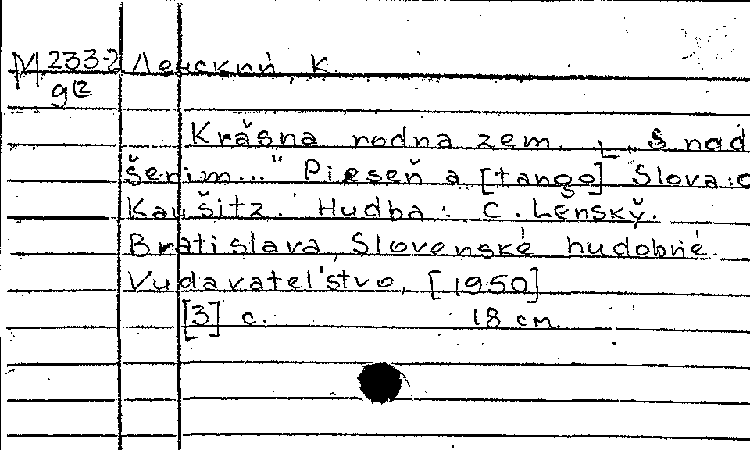 М 233-2 Ленский, К.
g12
Krásna rodna zem. [„S nad
šenim..." Pieseň a [tango] Slova: O
Kaušitz. Hudba: C. Lenský.
Bratislava, Slovenské hudobné
Vudavatel'stvo, [1950]
[3] c. 18 cm